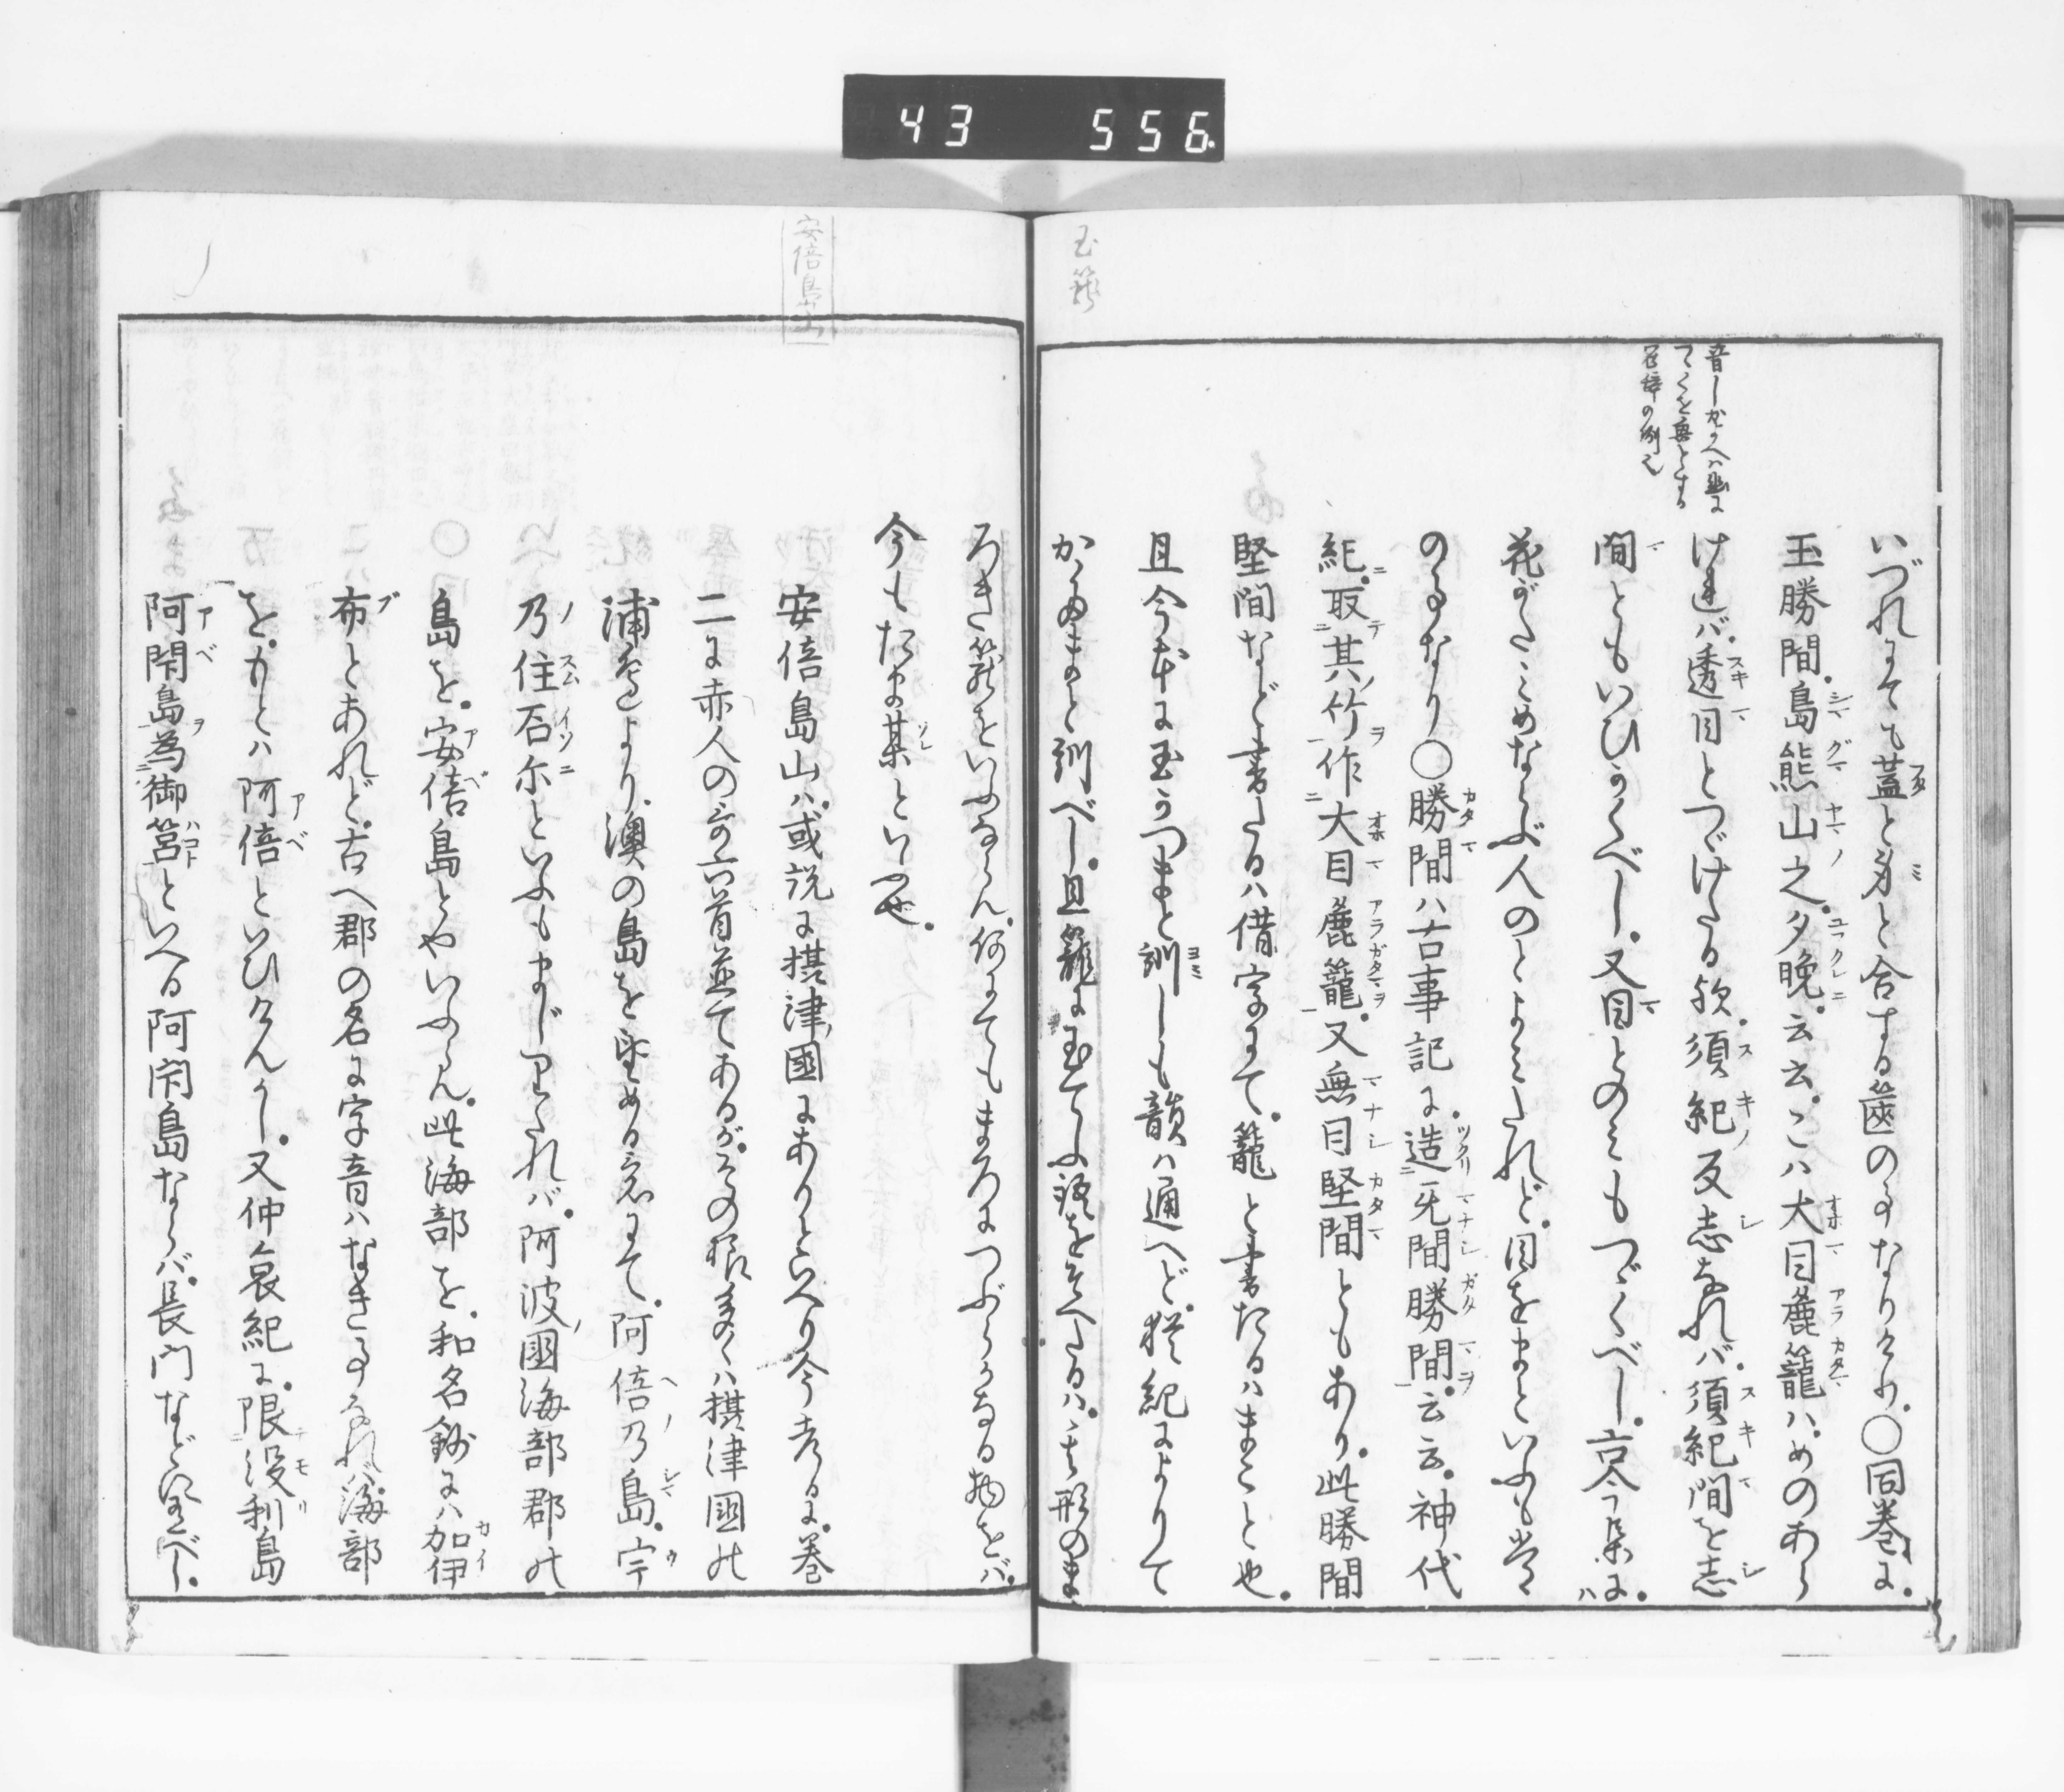 43 556
玉籠
音しかよへハ出に
名 の例也
いづれにても蓋と身と合する齒の事なりけり。〇同巻に。
玉勝間。島熊山之。夕晩。云云。こハ大目麁籠ハめのあら
ければ。透目とつゞけたる歟。須紀反志なれバ。須紀間を志
間ともいひつべし。又目とのミもつゞくべし。古今集に。ハ
花がたミめならぶ人のとよミたれど。目をまといふも常
の事なり〇勝間ハ古事記に。造无間勝間。云云。神代
紀。取其竹作大目麁籠。又無目堅間ともあり。此勝間
堅間など書たるハ借字にて。籠と書たるハまこと也。
且今本に玉かつまと訓しも韻ハ通へど。猶紀によりて
かたまと訓べし。且籠に玉てふ語をそへたるハ。其形のま
ろき籠をいふならん。何にてもまろにつぶらなる物をバ。
今もたま某といへば也。
安倍島山
安倍島山ハ。或説に摂津國にありといへり今考るに。巻
二に赤人の哥六首並てあるが。その根多くハ摂津國の
浦邊より。澳の島を望める意にて。阿倍乃島。宇
乃住石尓といふもまじりたれバ。阿波國海部郡の
島を。安倍島とやいふらん。此海部を。和名鈔にハ加伊
布とあれど。古へ郡の名に字音ハなき事なれバ。海部
を。もとハ阿倍といひけんかし。又仲哀紀に。限没利島
阿閇島為御筥といへる阿閇島ならバ。長門など望べし。